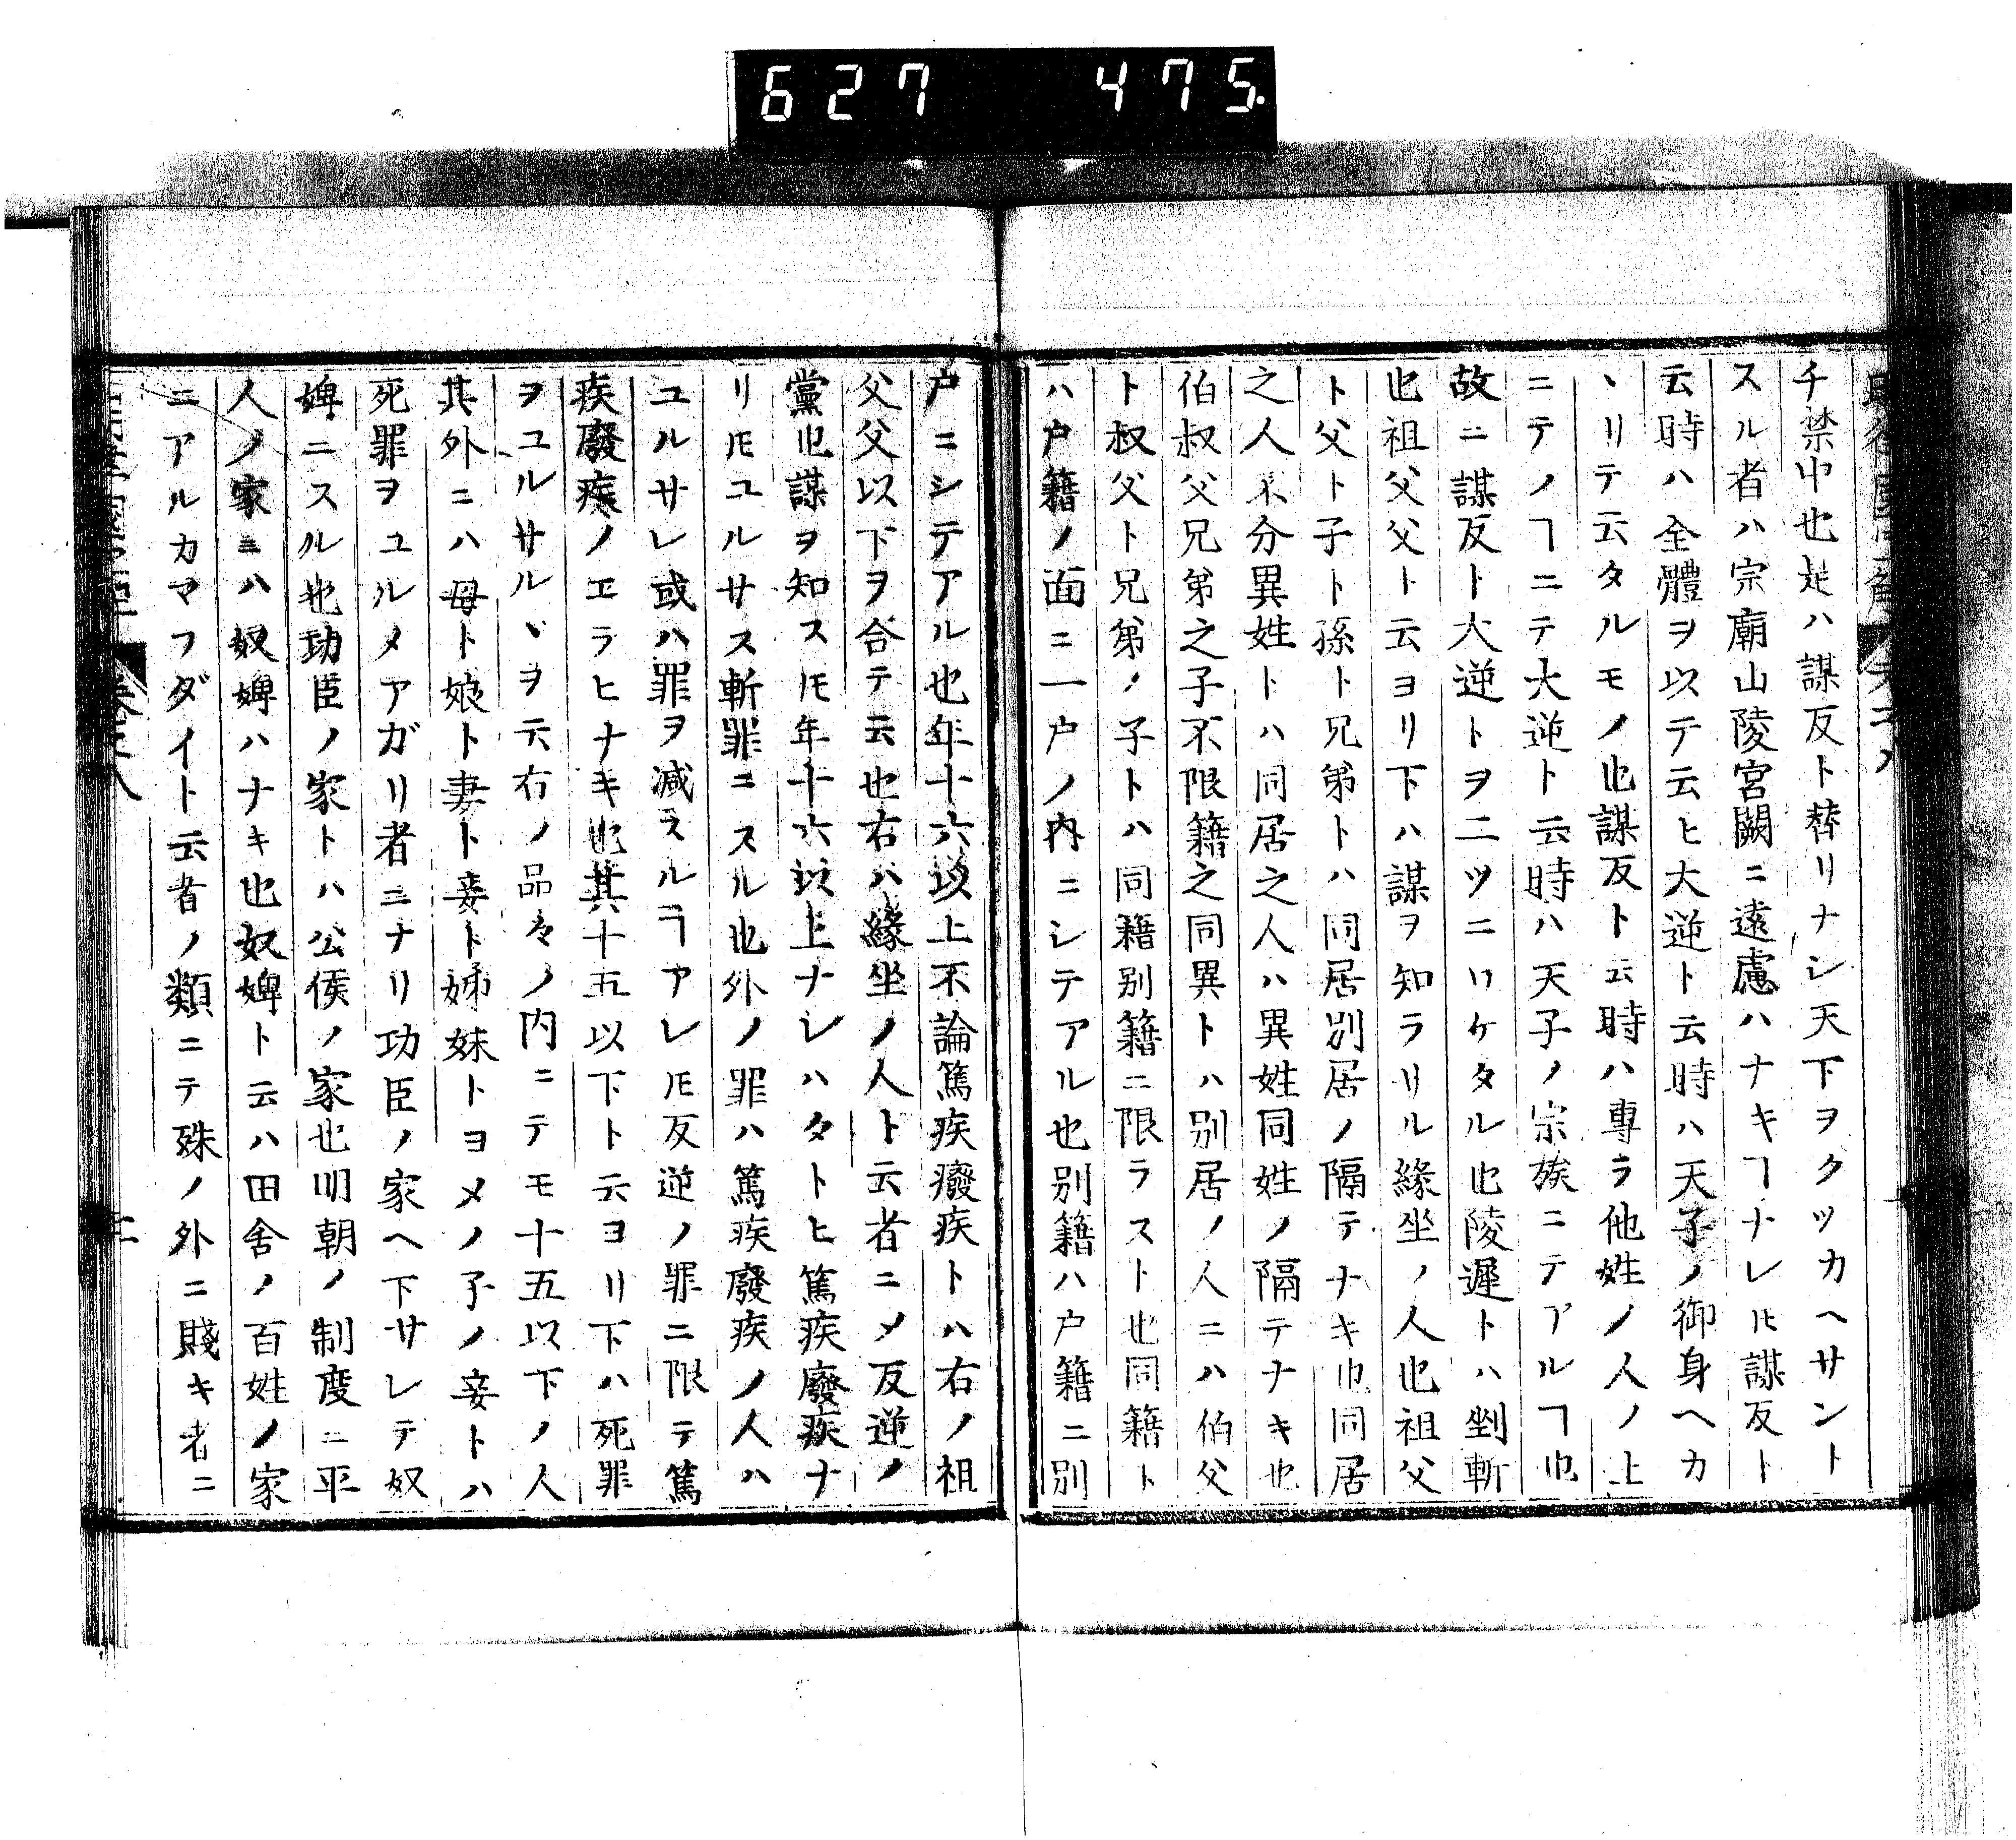 627 475.
チ禁中也是ハ謀反ト替リナシ天下ヲクツカヘサント
スル者ハ宗廟山陵宮闕ニ遠慮ハナキヿナレ𪜈謀反ト
云時ハ全體ヲ以テ云ヒ大逆ト云時ハ天子ノ御身ヘカ
ヽリテ云タルモノ也謀反ト云時ハ專ラ他姓ノ人ノ上
ニテノヿニテ大逆ト云時ハ天子ノ宗族ニテアルヿ也
故ニ謀反ト大逆トヲ二ツニワケタル也陵遲トハ剉斬
也祖父父ト云ヨリ下ハ謀ヲ知ラリル緣坐ノ人也祖父
ト父ト子ト孫ト兄弟トハ同居別居ノ隔テナキ也同居
之人不分異姓トハ同居之人ハ異姓同姓ノ隔テナキ也
伯叔父兄弟之子不限籍之同異トハ別居ノ人ニハ伯父
ト叔父ト兄弟ノ子トハ同籍別籍ニ限ラスト也同籍ト
ハ戸籍ノ面ニ一戸ノ內ニシテアル也別籍ハ戸籍ニ別
戸ニシテアル也年十六以上不論篤疾癈疾トハ右ノ祖
父父以下ヲ合テ云也右ハ緣坐ノ人ト云者ニメ反逆ノ
黨也謀ヲ知ス𪜈年十六以上ナレハタトヒ篤疾廢疾ナ
リ𪜈ユルサス斬罪ニスル也外ノ罪ハ篤疾廢疾ノ人ハ
ユルサレ或ハ罪ヲ減スルヿアレ𪜈反逆ノ罪ニ限テ篤
疾廢疾ノエラヒナキ也其十五以下ト云ヨリ下ハ死罪
ヲユルサルヽヲ云右ノ品々ノ内ニテモ十五以下ノ人
其外ニハ母ト娘ト妻ト妾ト姊妹トヨメノ子ノ妾トハ
死罪ヲユルメアガリ者ニナリ功臣ノ家ヘ下サレテ奴
婢ニスル也功臣ノ家トハ公侯ノ家也明朝ノ制度ニ平
人ノ家ニハ奴婢ハナキ也奴婢ト云ハ田舍ノ百姓ノ家
ニアルカマフダイト云者ノ類ニテ殊ノ外ニ賤キ者ニ